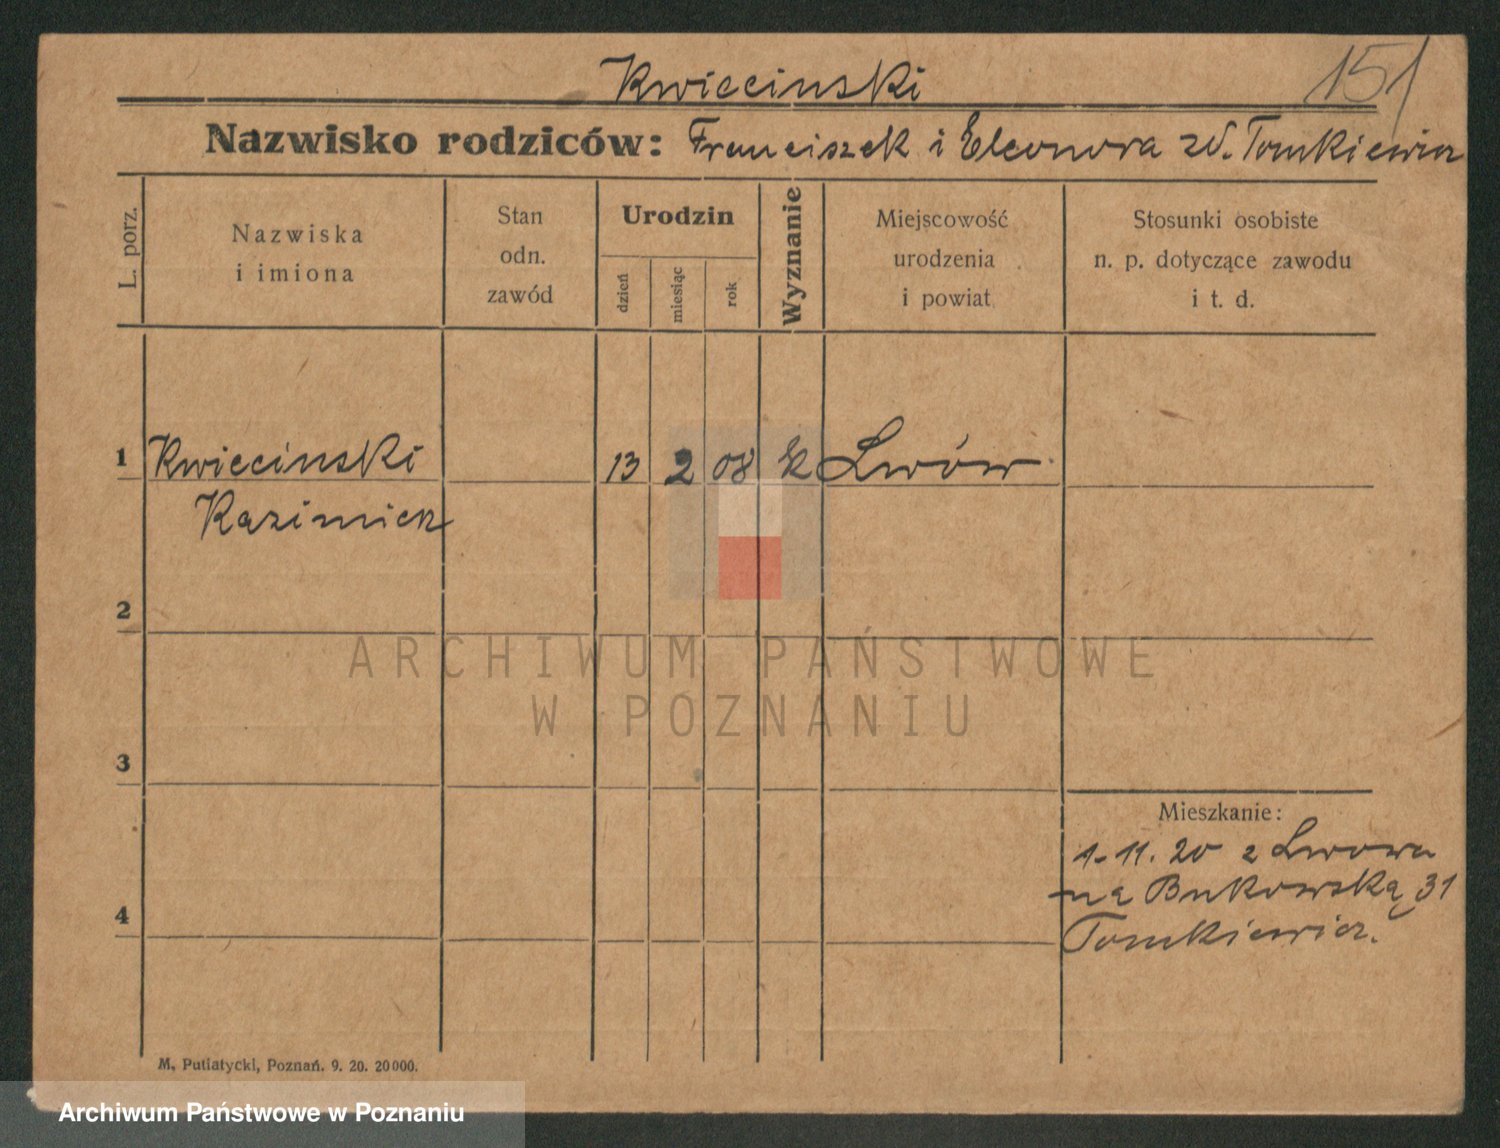 Kwieciński
151
Nazwisko rodziców: Franciszek i Eleonora zd. Tomkiewicz
L. porz.
Nazwiska
i imiona
Stan
odn.
zawód
Urodzin
dzień
miesiąc
rok
Wyznanie
Miejscowość
urodzenia
i powiat
Stosunki osobiste
n. p. dotyczące zawodu
i t. d.
1 Kwieciński 13 2 08 k Lwów
Kazimierz
2
ARCHIWUM PAŃSTWOWE
W POZNANIU
3
Mieszkanie:
1-11.20 z Lwowa
na Bukowską 31
4
Tomkiewicz.
M. Putiatycki, Poznań. 9. 20. 20000.
Archiwum Państwowe w Poznaniu